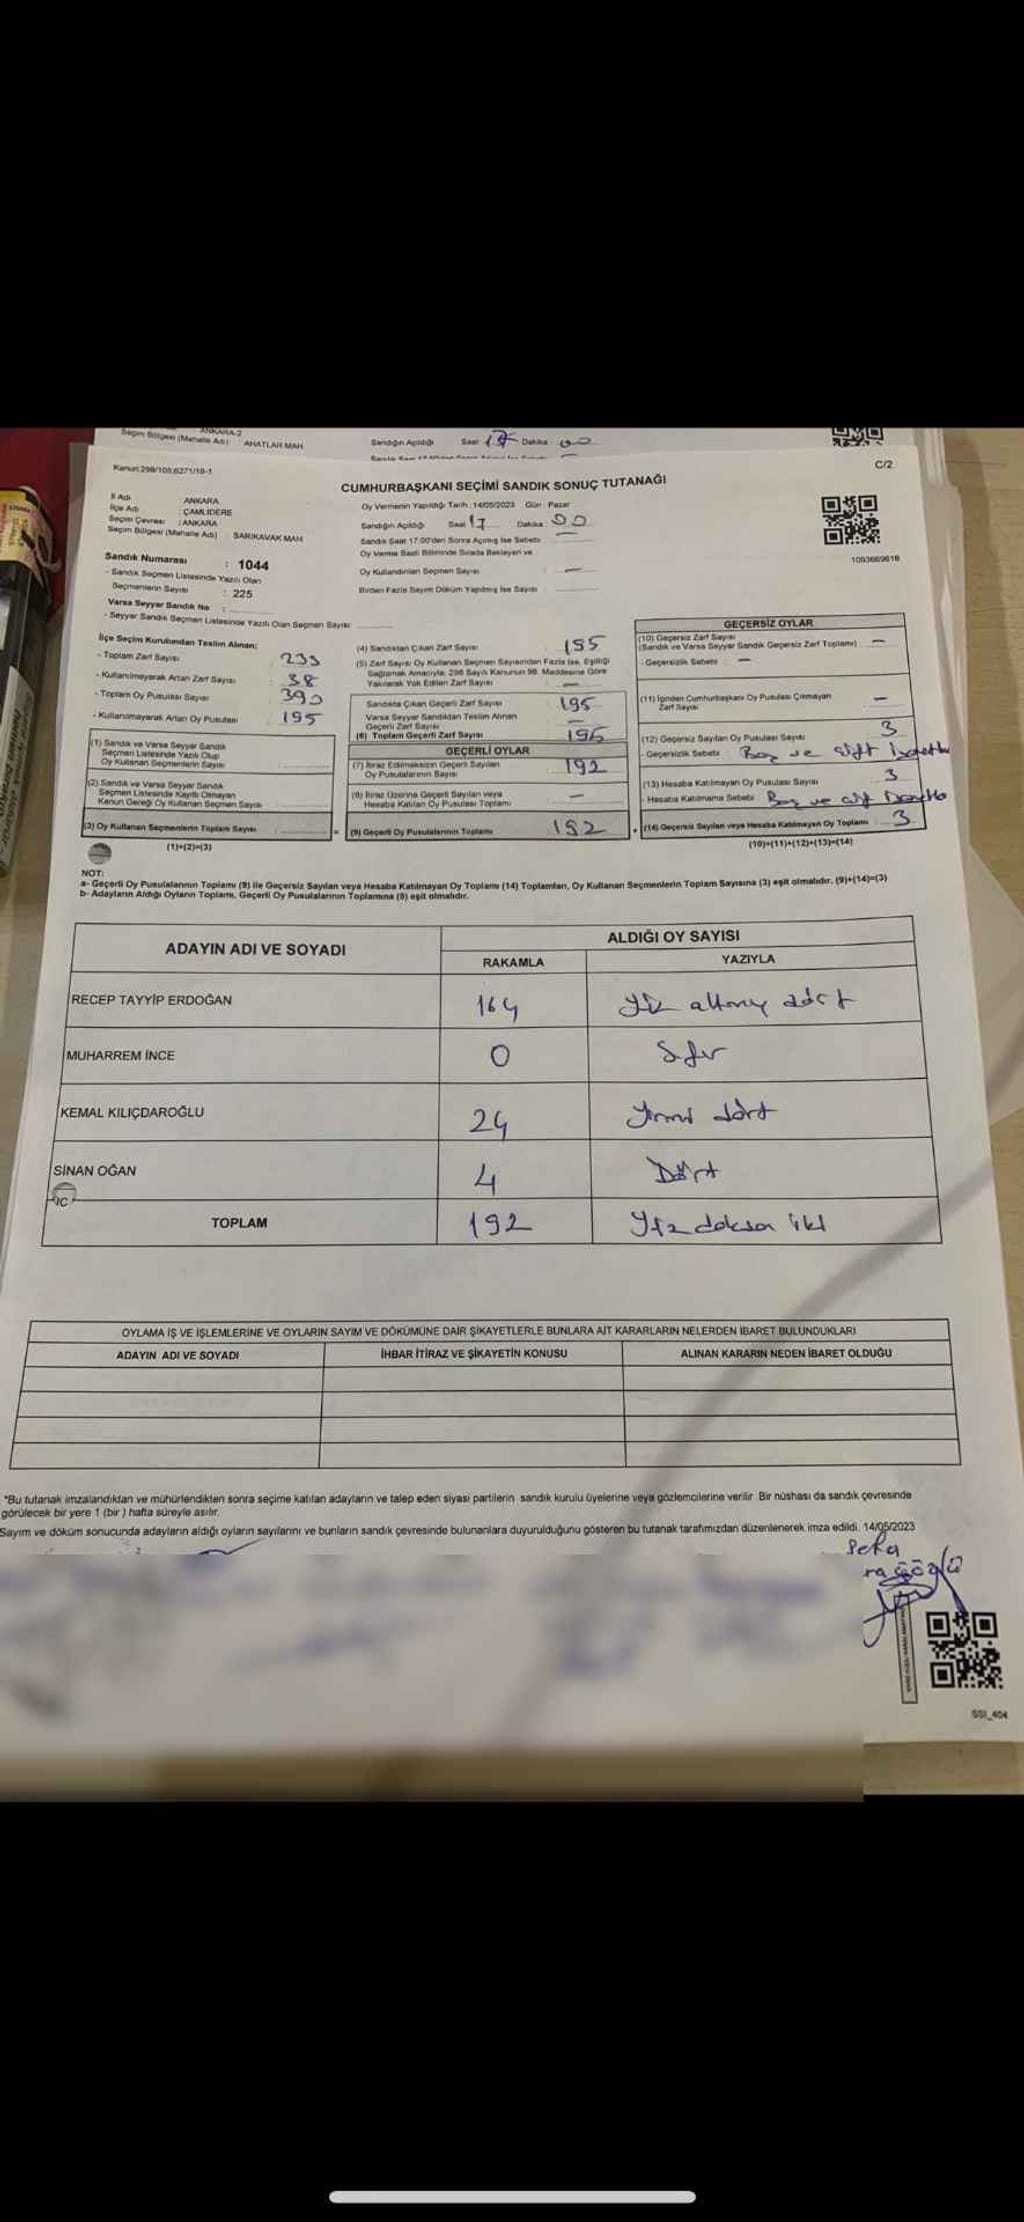 ANKARA-2
Seçim Bölgesi (Mahalle Adı) AHATLAR MAH
Sandığın Açıldığı Saat 17 Dakika 00
Kanun:298/105;6271/19-1
C/2
CUMHURBAŞKANI SEÇİMİ SANDIK SONUÇ TUTANAĞI
İl Adı : ANKARA
İlçe Adı : ÇAMLIDERE
Seçim Çevresi : ANKARA
Seçim Bölgesi (Mahalle Adı) SARIKAVAK MAH
Oy Vermenin Yapıldığı Tarih : 14/05/2023 Gün : Pazar
Sandığın Açıldığı Saat 17 Dakika 00
Sandık Saat 17:00'den Sonra Açılmış İse Sebebi
Oy Verme Saati Bitiminde Sırada Bekleyen ve
Oy Kullandırılan Seçmen Sayısı : —
Birden Fazla Sayım Döküm Yapılmış İse Sayısı :
Sandık Numarası : 1044
- Sandık Seçmen Listesinde Yazılı Olan
Seçmenlerin Sayısı : 225
Varsa Seyyar Sandık No :
- Seyyar Sandık Seçmen Listesinde Yazılı Olan Seçmen Sayısı
İlçe Seçim Kurulundan Teslim Alınan;
- Toplam Zarf Sayısı : 233
- Kullanılmayarak Artan Zarf Sayısı : 38
- Toplam Oy Pusulası Sayısı : 390
- Kullanılmayarak Artan Oy Pusulası : 195
(1) Sandık ve Varsa Seyyar Sandık
Seçmen Listesinde Yazılı Olup
Oy Kullanan Seçmenlerin Sayısı
(2) Sandık ve Varsa Seyyar Sandık
Seçmen Listesinde Kayıtlı Olmayan
Kanun Gereği Oy Kullanan Seçmen Sayısı
(3) Oy Kullanan Seçmenlerin Toplam Sayısı
(1)+(2)=(3)
(4) Sandıktan Çıkan Zarf Sayısı : 195
(5) Zarf Sayısı Oy Kullanan Seçmen Sayısından Fazla İse, Eşitliği
Sağlamak Amacıyla, 298 Sayılı Kanunun 98. Maddesine Göre
Yakılarak Yok Edilen Zarf Sayısı : —
Sandıkta Çıkan Geçerli Zarf Sayısı 195
Varsa Seyyar Sandıktan Teslim Alınan
Geçerli Zarf Sayısı —
(6) Toplam Geçerli Zarf Sayısı 195
GEÇERLİ OYLAR
(7) İtiraz Edilmeksizin Geçerli Sayılan
Oy Pusulalarının Sayısı 192
(8) İtiraz Üzerine Geçerli Sayılan veya
Hesaba Katılan Oy Pusulası Toplamı —
(9) Geçerli Oy Pusulalarının Toplamı 192
1053669616
GEÇERSİZ OYLAR
(10) Geçersiz Zarf Sayısı
(Sandık ve Varsa Seyyar Sandık Geçersiz Zarf Toplamı) —
- Geçersizlik Sebebi : —
(11) İçinden Cumhurbaşkanı Oy Pusulası Çıkmayan
Zarf Sayısı —
(12) Geçersiz Sayılan Oy Pusulası Sayısı 3
- Geçersizlik Sebebi : Boş ve çift
(13) Hesaba Katılmayan Oy Pusulası Sayısı 3
- Hesaba Katılmama Sebebi : Boş ve çift
(14) Geçersiz Sayılan veya Hesaba Katılmayan Oy Toplamı 3
(10)+(11)+(12)+(13)=(14)
NOT:
a- Geçerli Oy Pusulalarının Toplamı (9) ile Geçersiz Sayılan veya Hesaba Katılmayan Oy Toplamı (14) Toplamları, Oy Kullanan Seçmenlerin Toplam Sayısına (3) eşit olmalıdır. (9)+(14)=(3)
b- Adayların Aldığı Oyların Toplamı, Geçerli Oy Pusulalarının Toplamına (9) eşit olmalıdır.
ADAYIN ADI VE SOYADI ALDIĞI OY SAYISI
RAKAMLA YAZIYLA
RECEP TAYYİP ERDOĞAN 164 Yüz altmış dört
MUHARREM İNCE 0 Sıfır
KEMAL KILIÇDAROĞLU 24 Yirmi dört
SİNAN OĞAN 4 Dört
TOPLAM 192 Yüz doksan iki
OYLAMA İŞ VE İŞLEMLERİNE VE OYLARIN SAYIM VE DÖKÜMÜNE DAİR ŞİKAYETLERLE BUNLARA AİT KARARLARIN NELERDEN İBARET BULUNDUKLARI
ADAYIN ADI VE SOYADI İHBAR İTİRAZ VE ŞİKAYETİN KONUSU ALINAN KARARIN NEDEN İBARET OLDUĞU
"Bu tutanak imzalandıktan ve mühürlendikten sonra seçime katılan adayların ve talep eden siyasi partilerin sandık kurulu üyelerine veya gözlemcilerine verilir. Bir nüshası da sandık çevresinde
görülecek bir yere 1 (bir ) hafta süreyle asılır.
Sayım ve döküm sonucunda adayların aldığı oyların sayılarını ve bunların sandık çevresinde bulunanlara duyurulduğunu gösteren bu tutanak tarafımızdan düzenlenerek imza edildi. 14/05/2023
SSI_404